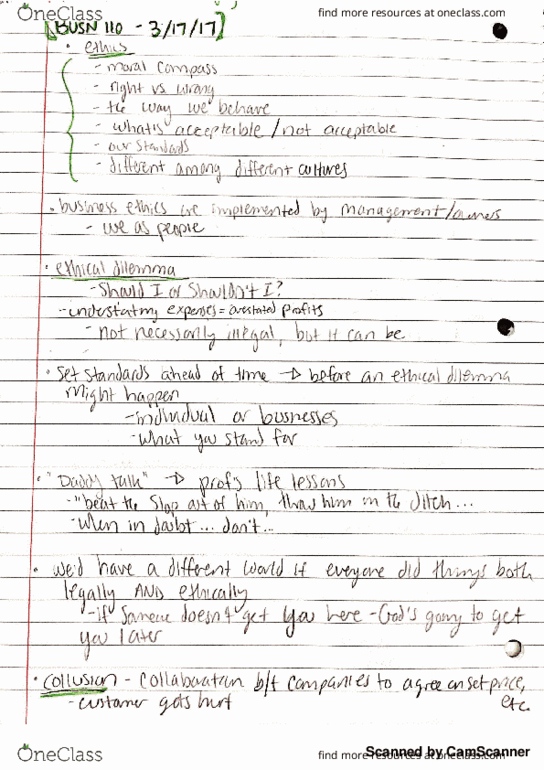 OneClass
find more resources at oneclass.com
[BUSN 110 - 3/17/17]
• ethics
- moral compass
- right vs wrong
- the way we behave
- whatis acceptable / not acceptable
- our standards
- different among different cultures
• business ethics are implemented by management/owners
- we as people
• ethical dilemma
- Should I or Shouldn't I?
- understating expenses = overstated profits
- not necessarily illegal, but it can be
• Set standards ahead of time → before an ethical dilemma
might happen
- individual or businesses
- what you stand for
• "Daddy talk" → prof's life lessons
- "beat the slop out of him, throw him in the ditch...
- when in doubt... don't...
• we'd have a different world if everyone did things both
legally AND ethically
- if someone doesn't get you here - God's going to get
you later
• Collusion - collaboration b/t companies to agree on set price,
etc.
- customer gets hurt
OneClass
find more resources at oneclass.com
Scanned by CamScanner